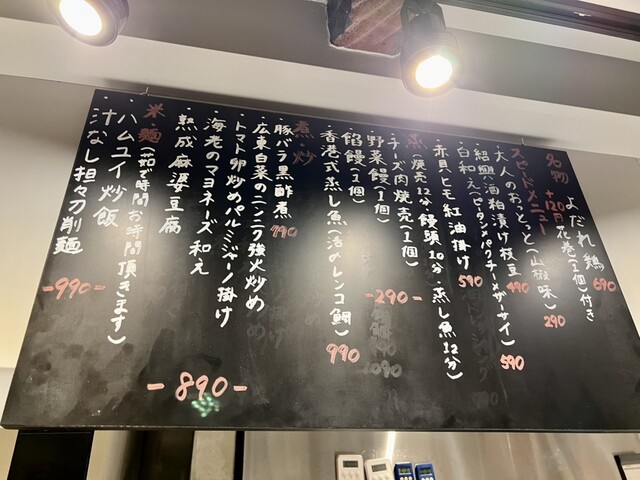 名物
よだれ鶏 690
+120円 花巻(1個)付き
スピードメニュー
・大人のおっとっと(山椒味) 290
・紹興酒粕漬け枝豆 490
・白和え(ピータン×パクチー×ザーサイ) 590
・赤貝ヒモ紅油掛け 590
蒸(焼売12分・饅頭10分・蒸し魚12分)
・チーズ肉焼売(1個)
・野菜饅(1個)
・餡饅(1個)
-290-
・香港式蒸し魚(活〆レンコ鯛) 990
煮・炒
・豚バラ黒酢煮 990
・広東白菜のニンニク強火炒め
・トマト卵炒めパルミジャーノ掛け
・海老のマヨネーズ和え
・熟成麻婆豆腐
-890-
米・麺(茹で時間お時間頂きます)
・ハムユイ炒飯
・汁なし担々刀削麺
-990-